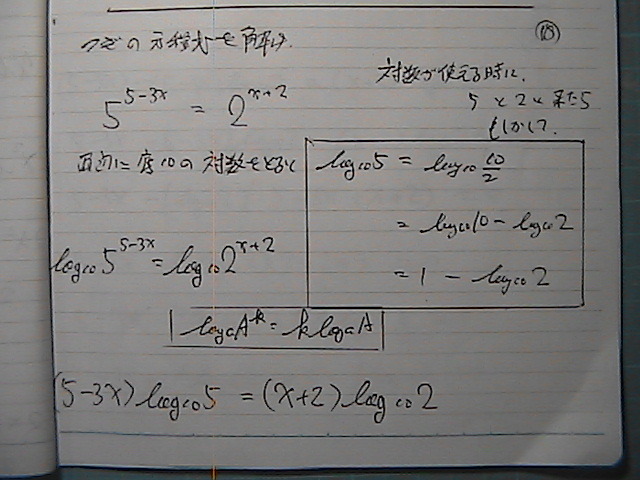 ⑱
つぎの方程式を解け.
5^{5-3x} = 2^{x+2}
対数が使える時に,
5 と 2 と 来たら
もしかして.
両辺に底10の対数をとると
log₁₀5 = log₁₀ 10/2
= log₁₀10 - log₁₀2
= 1 - log₁₀2
log₁₀5^{5-3x} = log₁₀2^{x+2}
logₐA^k = k logₐA
(5-3x) log₁₀5 = (x+2) log₁₀2